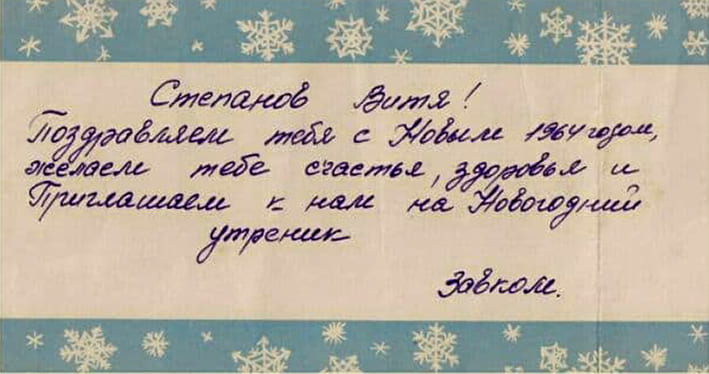 Степанов Витя!
Поздравляем тебя с Новым 1964 годом,
желаем тебе счастья, здоровья и
Приглашаем к нам на Новогодний
утреник
Завком.